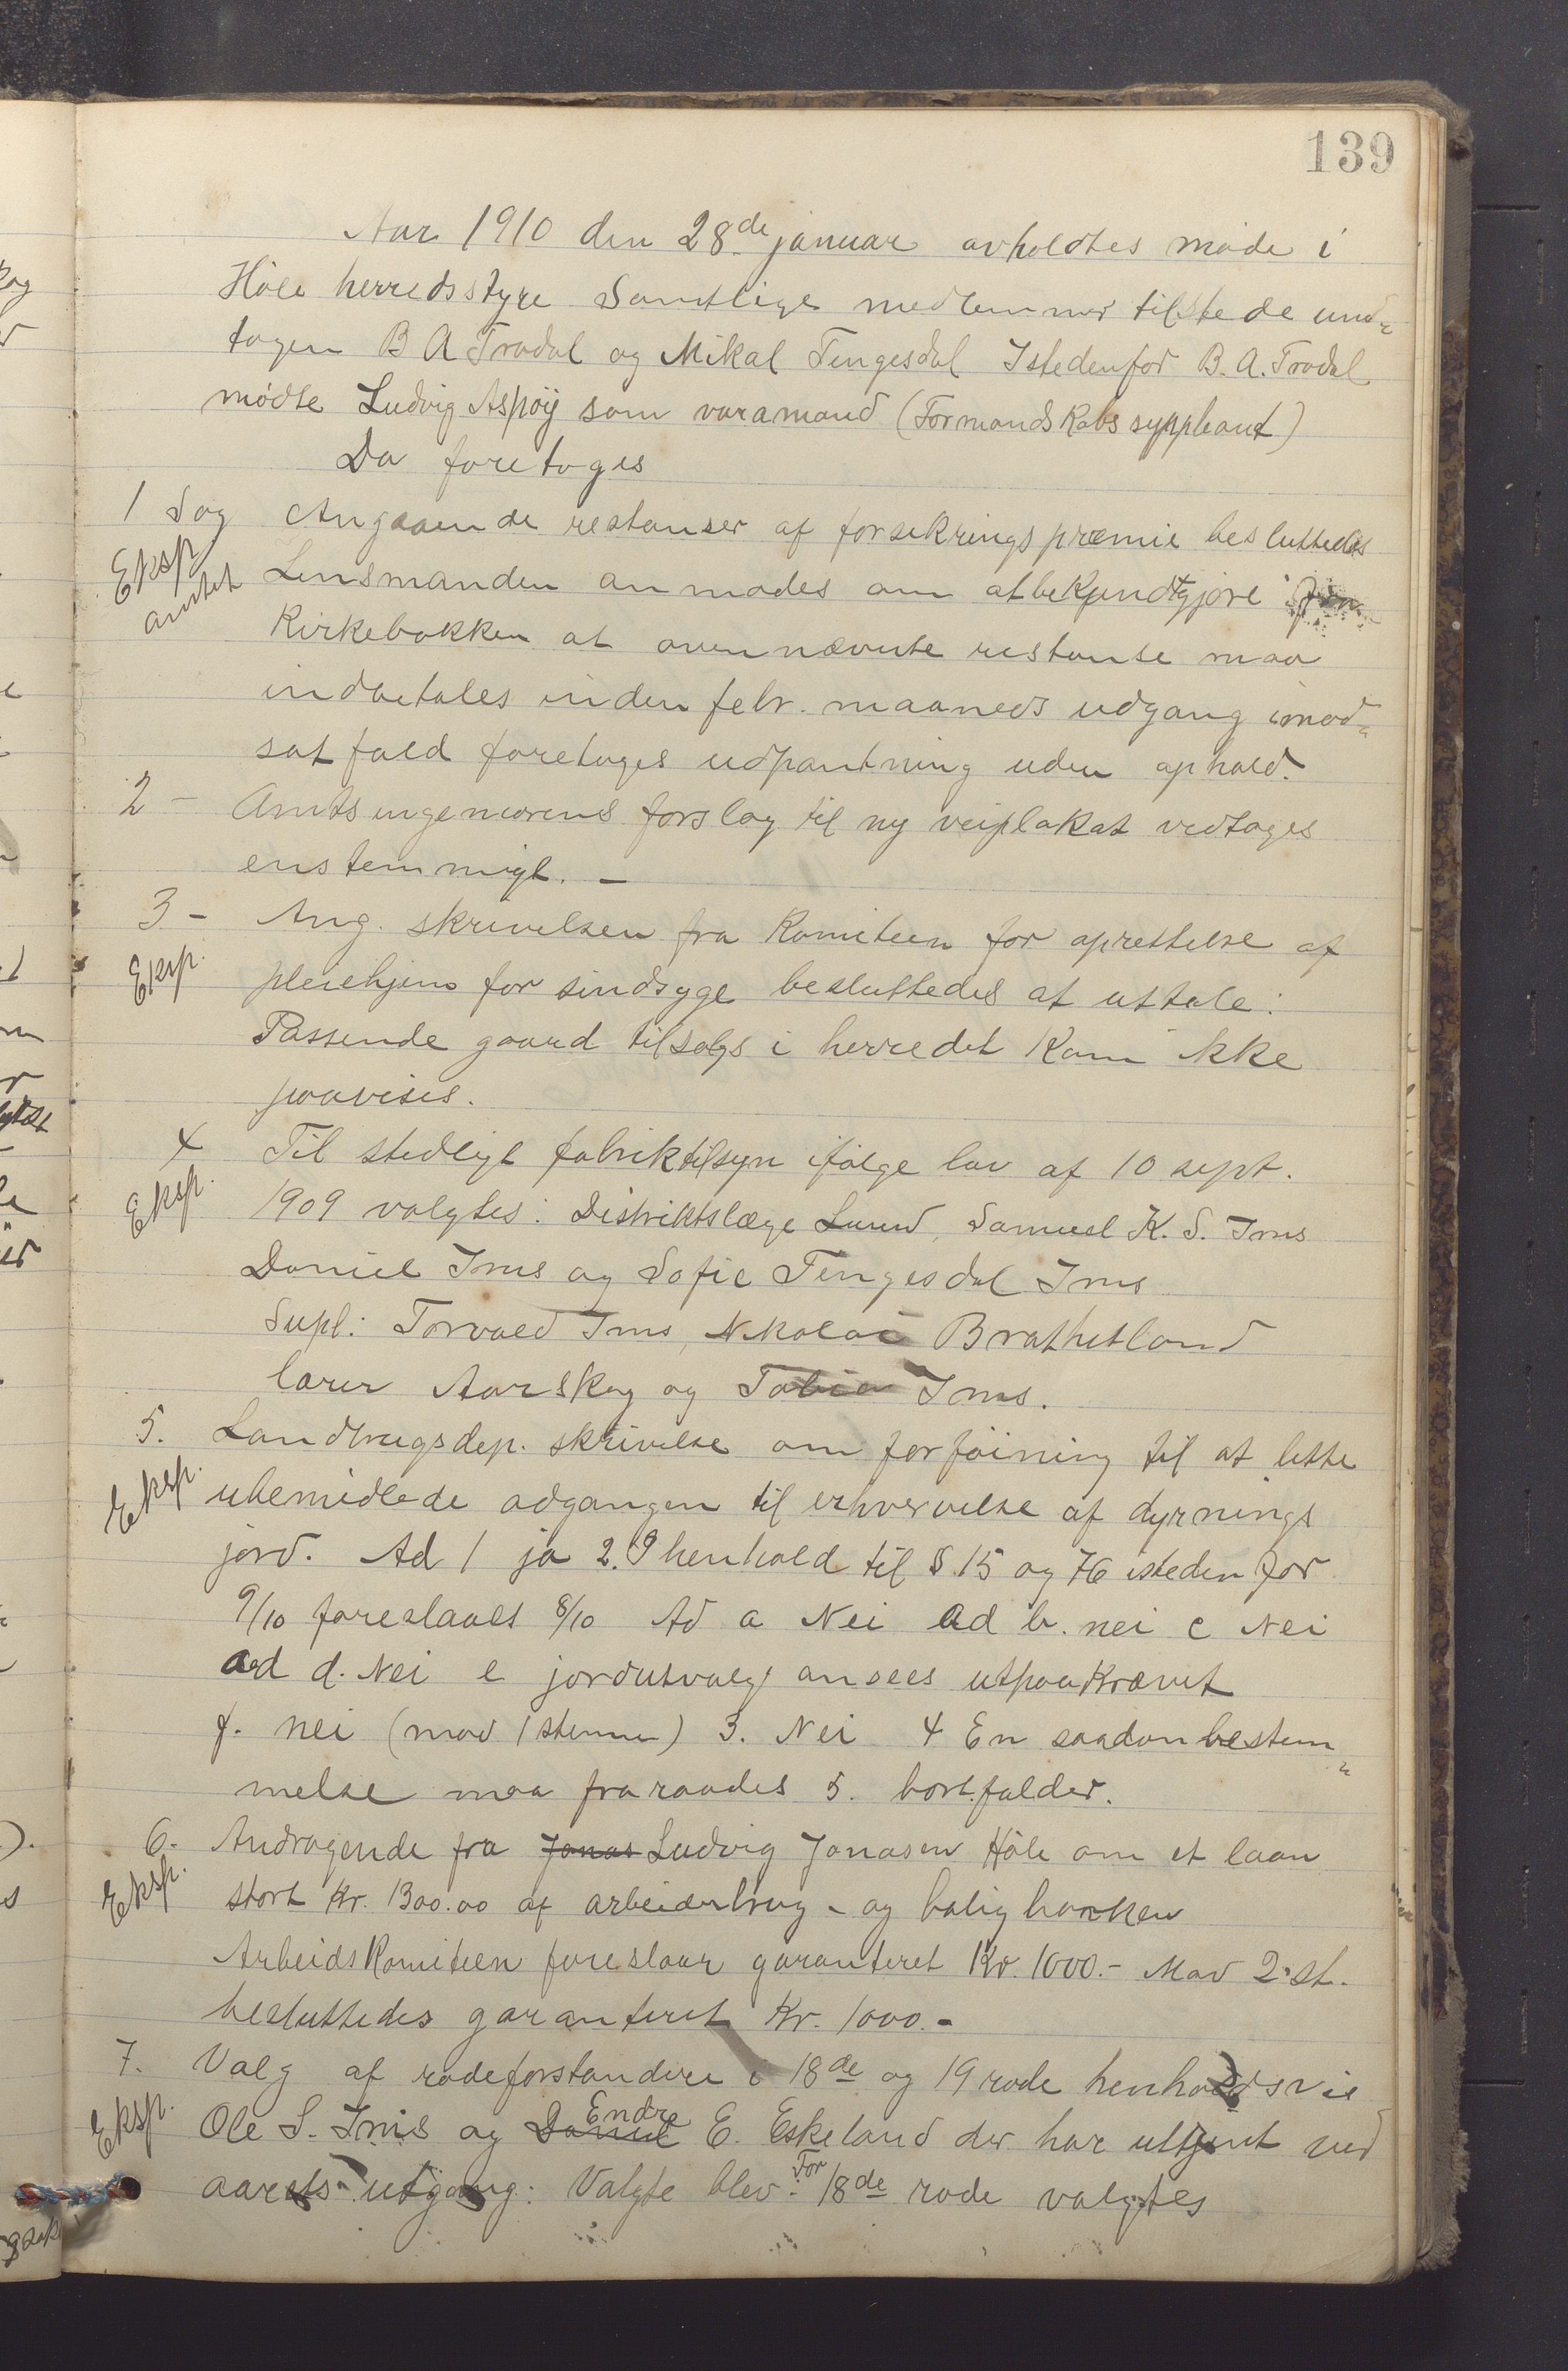 139
Aar 1910 den 28de januar avholdtes møde i
Høle herredsstyre Samtlige medlemmer tilstede und-
tagen B A Tradal og Mikal Tengesdal Istedenfor B. A. Tradal
mødte Ludvig Aspøy som varamand (Formandskabssuppleant)
Da foretoges
1 Sag Angaaende restanser af forsekringspræmie besluttedes
Eksp amtet Lensmanden anmodes om at bekjendtgjøre fra
Kirkebakken at ovennævnte restanse maa
indbetales inden febr. maaneds udgang imod-
sat fald foretages udpantning uden ophold.
2 - Amtsingeniørens forslag til ny veiplakat vedtages
enstemmigt. -
3 - Ang. skrivelsen fra Komiteen for oprettelse af
Eksp. pleiehjem for sindsyge besluttedes at uttale:
Passende gaard tilsalgs i herredet kan ikke
paavises.
4 Til stedligt fabriktilsyn ifølge lov af 10 sept.
Eksp. 1909 valgtes: Distriktslæge Lund, Samuel K. S. Ims
Daniel Ims og Sofie Tengesdal Ims
Supl: Torvald Ims, Nikolai Brathetland
lærer Aarskog og Tobia Ims.
5. Landbrugsdep. skrivelse om forføining til at lette
Eksp. ubemidlede adgangen til erhvervelse af dyrnings
jord. Ad 1 ja 2. I henhold til § 15 og 76 isteden for
9/10 foreslaaes 8/10 Ad a Nei Ad b. nei c Nei
ad d. Nei e jordutvalg ansees utpaakrævet
f. nei (mod 1 stemme) 3. Nei 4 En saadan bestem-
melse maa fraraades 5. bortfalder.
6. Andragende fra Jonas Ludvig Jonasen Høle om et laan
Eksp. stort Kr. 1300.00 af arbeiderbrug - og boligbanken
Arbeidskomiteen foreslaar garanteret Kr. 1000.- Mod 2 st.
besluttedes garanteret Kr. 1000.-
7. Valg af rodeforstandere i 18de og 19 rode henholdsvis
Eksp. Ole S. Ims og Daniel Endre E. Eskeland der har uttjent ved
aarets utgang: Valgte blev: For 18de rode valgtes